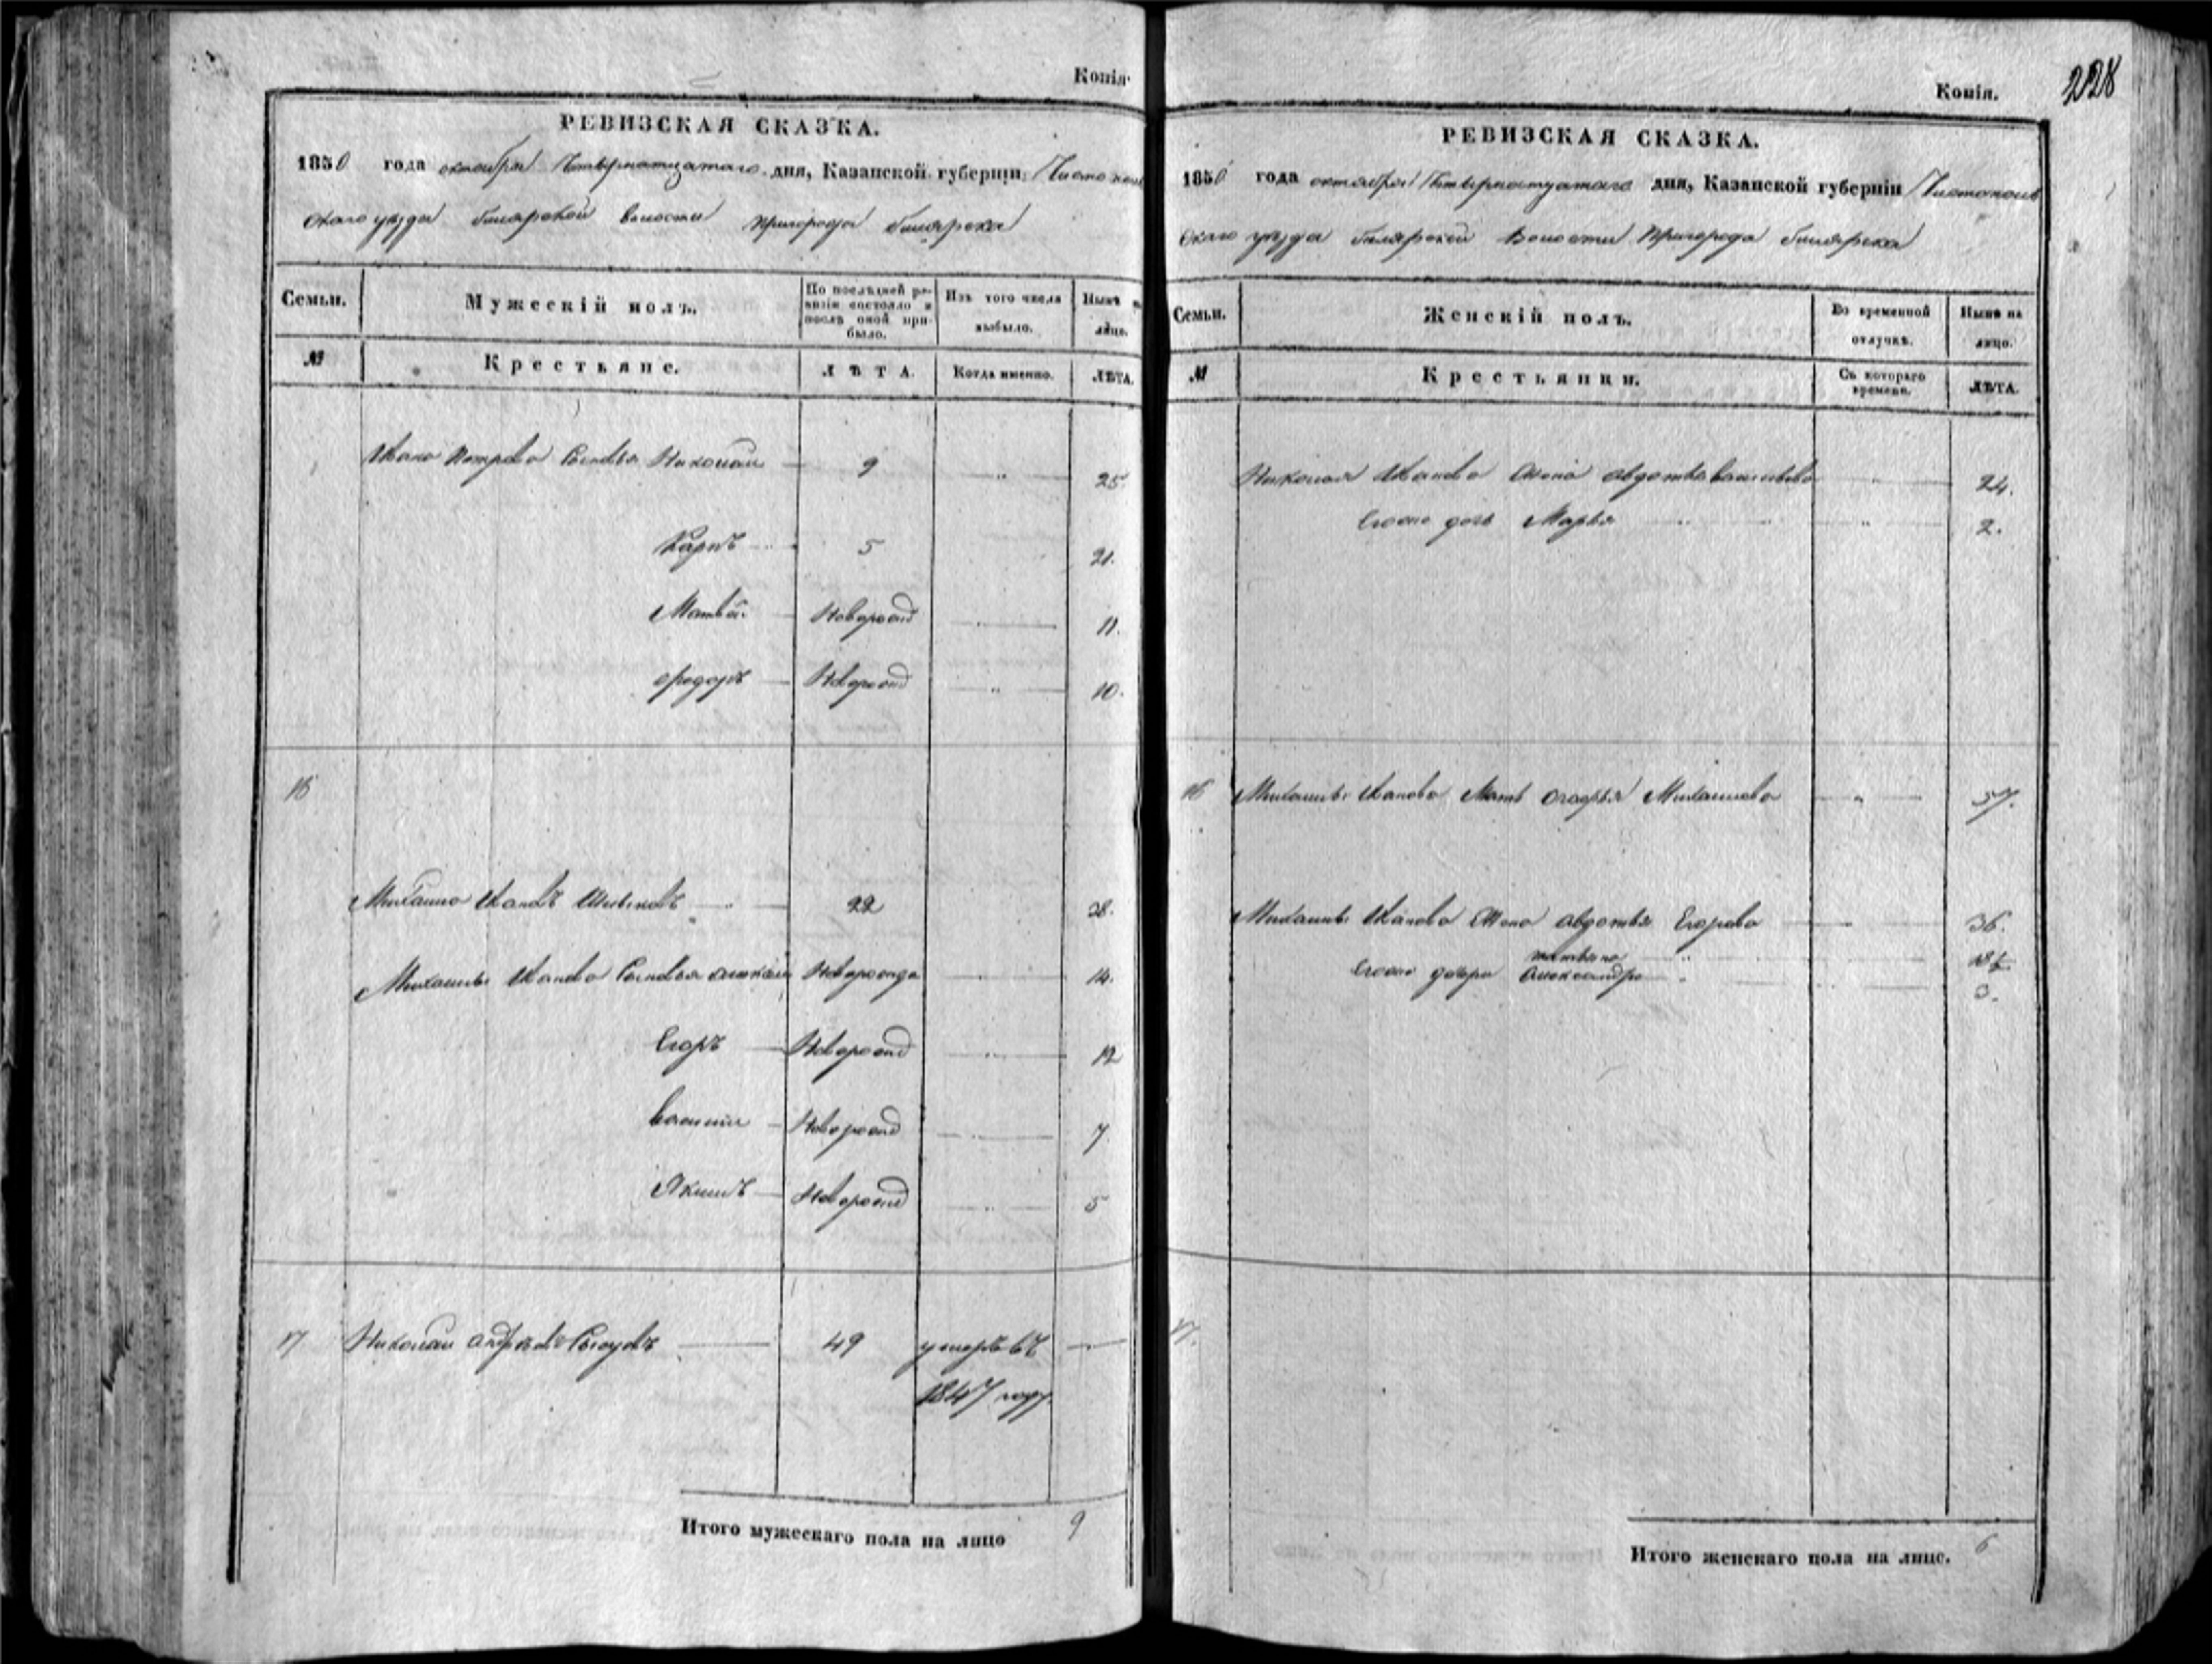 Копія.
РЕВИЗСКАЯ СКАЗКА.
1850 года октября Четырнатцатаго дня, Казанской губерніи Чистополь
скаго уезда билярской волости пригорода билярска
Семьи.
Мужескій полъ.
По послѣдней ре-
визіи состояло и
послѣ оной при-
было.
Изъ того числа
выбыло.
Нынѣ на
лицо.
№
Крестьяне.
ЛѢТА.
Когда именно.
ЛѢТА.
Ивана Петрова Сыновья Николай 9 25
Карпъ 5 21.
Матвей Новорожд 11.
Федоръ Новорожд 10.
16
Михаило Ивановъ 22 38.
Михайлы Иванова Сыновья Новорожде 14.
Егоръ Новорожд 12
Василий Новорожд 7.
Якимъ Новорожд 5
17 Николай Андреевъ 49 умеръ въ
1847 году.
Итого мужескаго пола на лицо 9
Копія.
228
РЕВИЗСКАЯ СКАЗКА.
1850 года октября Четырнатцатаго дня, Казанской губерніи Чистополь
скаго уезда билярской Волости Пригорода билярска
Семьи.
Женскій полъ.
Во временной
отлучкѣ.
Нынѣ на
лицо.
№
Крестьянки.
Съ котораго
времени.
ЛѢТА.
Николая Иванова Жена Авдотья Васильева 24.
Егоже дочь Марья 2.
16 Михайлы Иванова Мать Михайлова 57.
Михайлы Иванова Жена Авдотья Егорова 36.
Татьяна
Егоже дочери Александра
17.
Итого женскаго пола на лице. 6